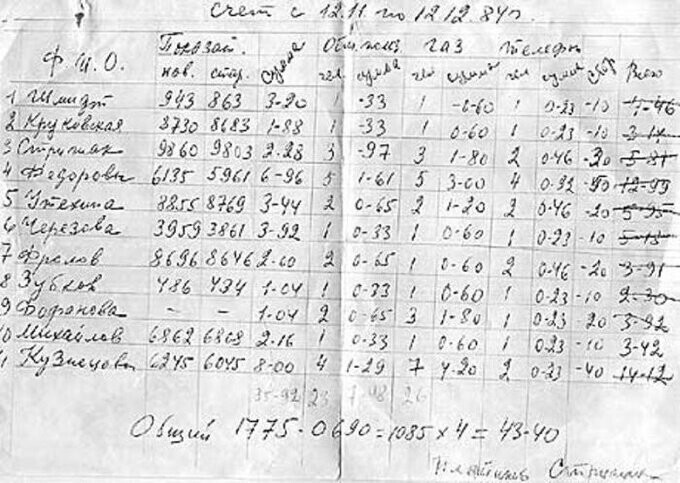 Счет с 12.11. по 12.12.84г.
Показат. Общ. польз. газ телефон
Ф.И.О. нов. стар. сумма чел сумма чел сумма чел сумма сбор Всего
1 Шмидт 943 863 3-20 1 -33 1 -0-60 1 0-23 -10 4-46
2 Круковская 8730 8683 1-88 1 -33 1 0-60 1 0-23 -10 3-14
3 Стрижак 9860 9803 2-28 3 -97 3 1-80 2 0-46 -20
4 Федоровы 6135 5961 6-96 5 1-61 5 3-00 4 0-92
5 Утехина 8855 8769 3-44 2 0-65 2 1-20 2 0-46 -20 5-95
6 Черезова 3959 3861 3-92 1 0-33 1 0-60 1 0-23 -10
7 Фролов 8696 8646 2-00 2 0-65 1 0-60 2 0-46 -20 3-91
8 Зубков 486 434 1-04 1 0-33 1 0-60 1 0-23 -10 2-30
9 – – 1-04 2 0-65 3 1-80 1 0-23 20
10 Михайлов 6862 6808 2-16 1 0-33 1 0-60 1 0-23 -10 3-42
11 Кузнецовы 6245 6045 8-00 4 1-29 7 4-20 2 0-23 -40 14-12
23 26
Общий 1775-0690=1085 x 4 = 43-40